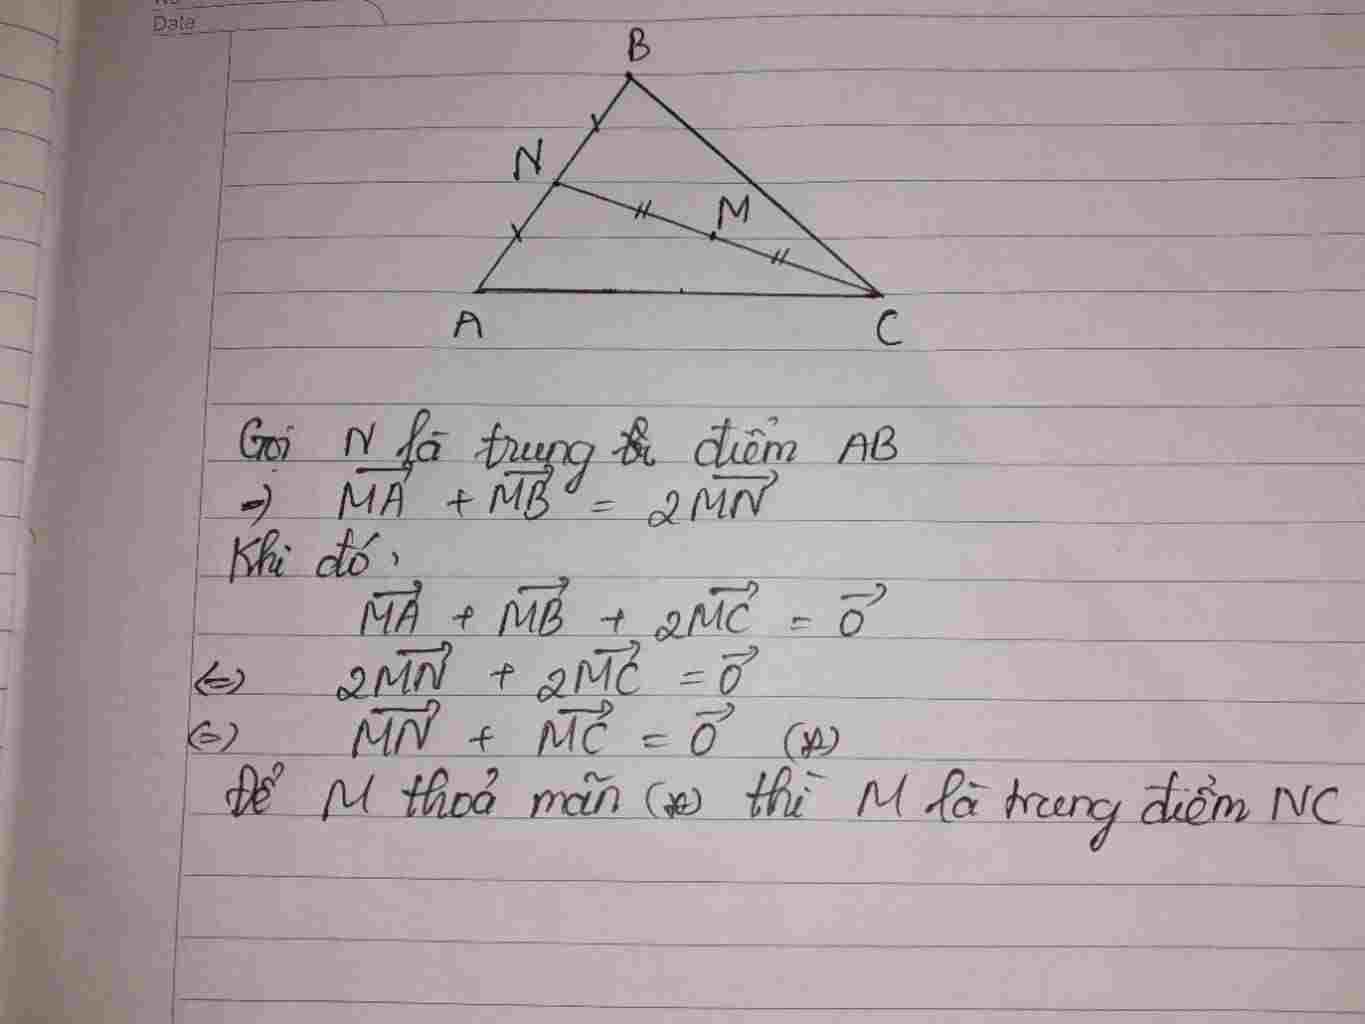 Date
B
N
M
A
C
Gọi N là trung điểm AB
=> \overrightarrow{MA} + \overrightarrow{MB} = 2\overrightarrow{MN}
Khi đó,
\overrightarrow{MA} + \overrightarrow{MB} + 2\overrightarrow{MC} = \overrightarrow{0}
<=> 2\overrightarrow{MN} + 2\overrightarrow{MC} = \overrightarrow{0}
<=> \overrightarrow{MN} + \overrightarrow{MC} = \overrightarrow{0} (*)
Để M thoả mãn (*) thì M là trung điểm NC